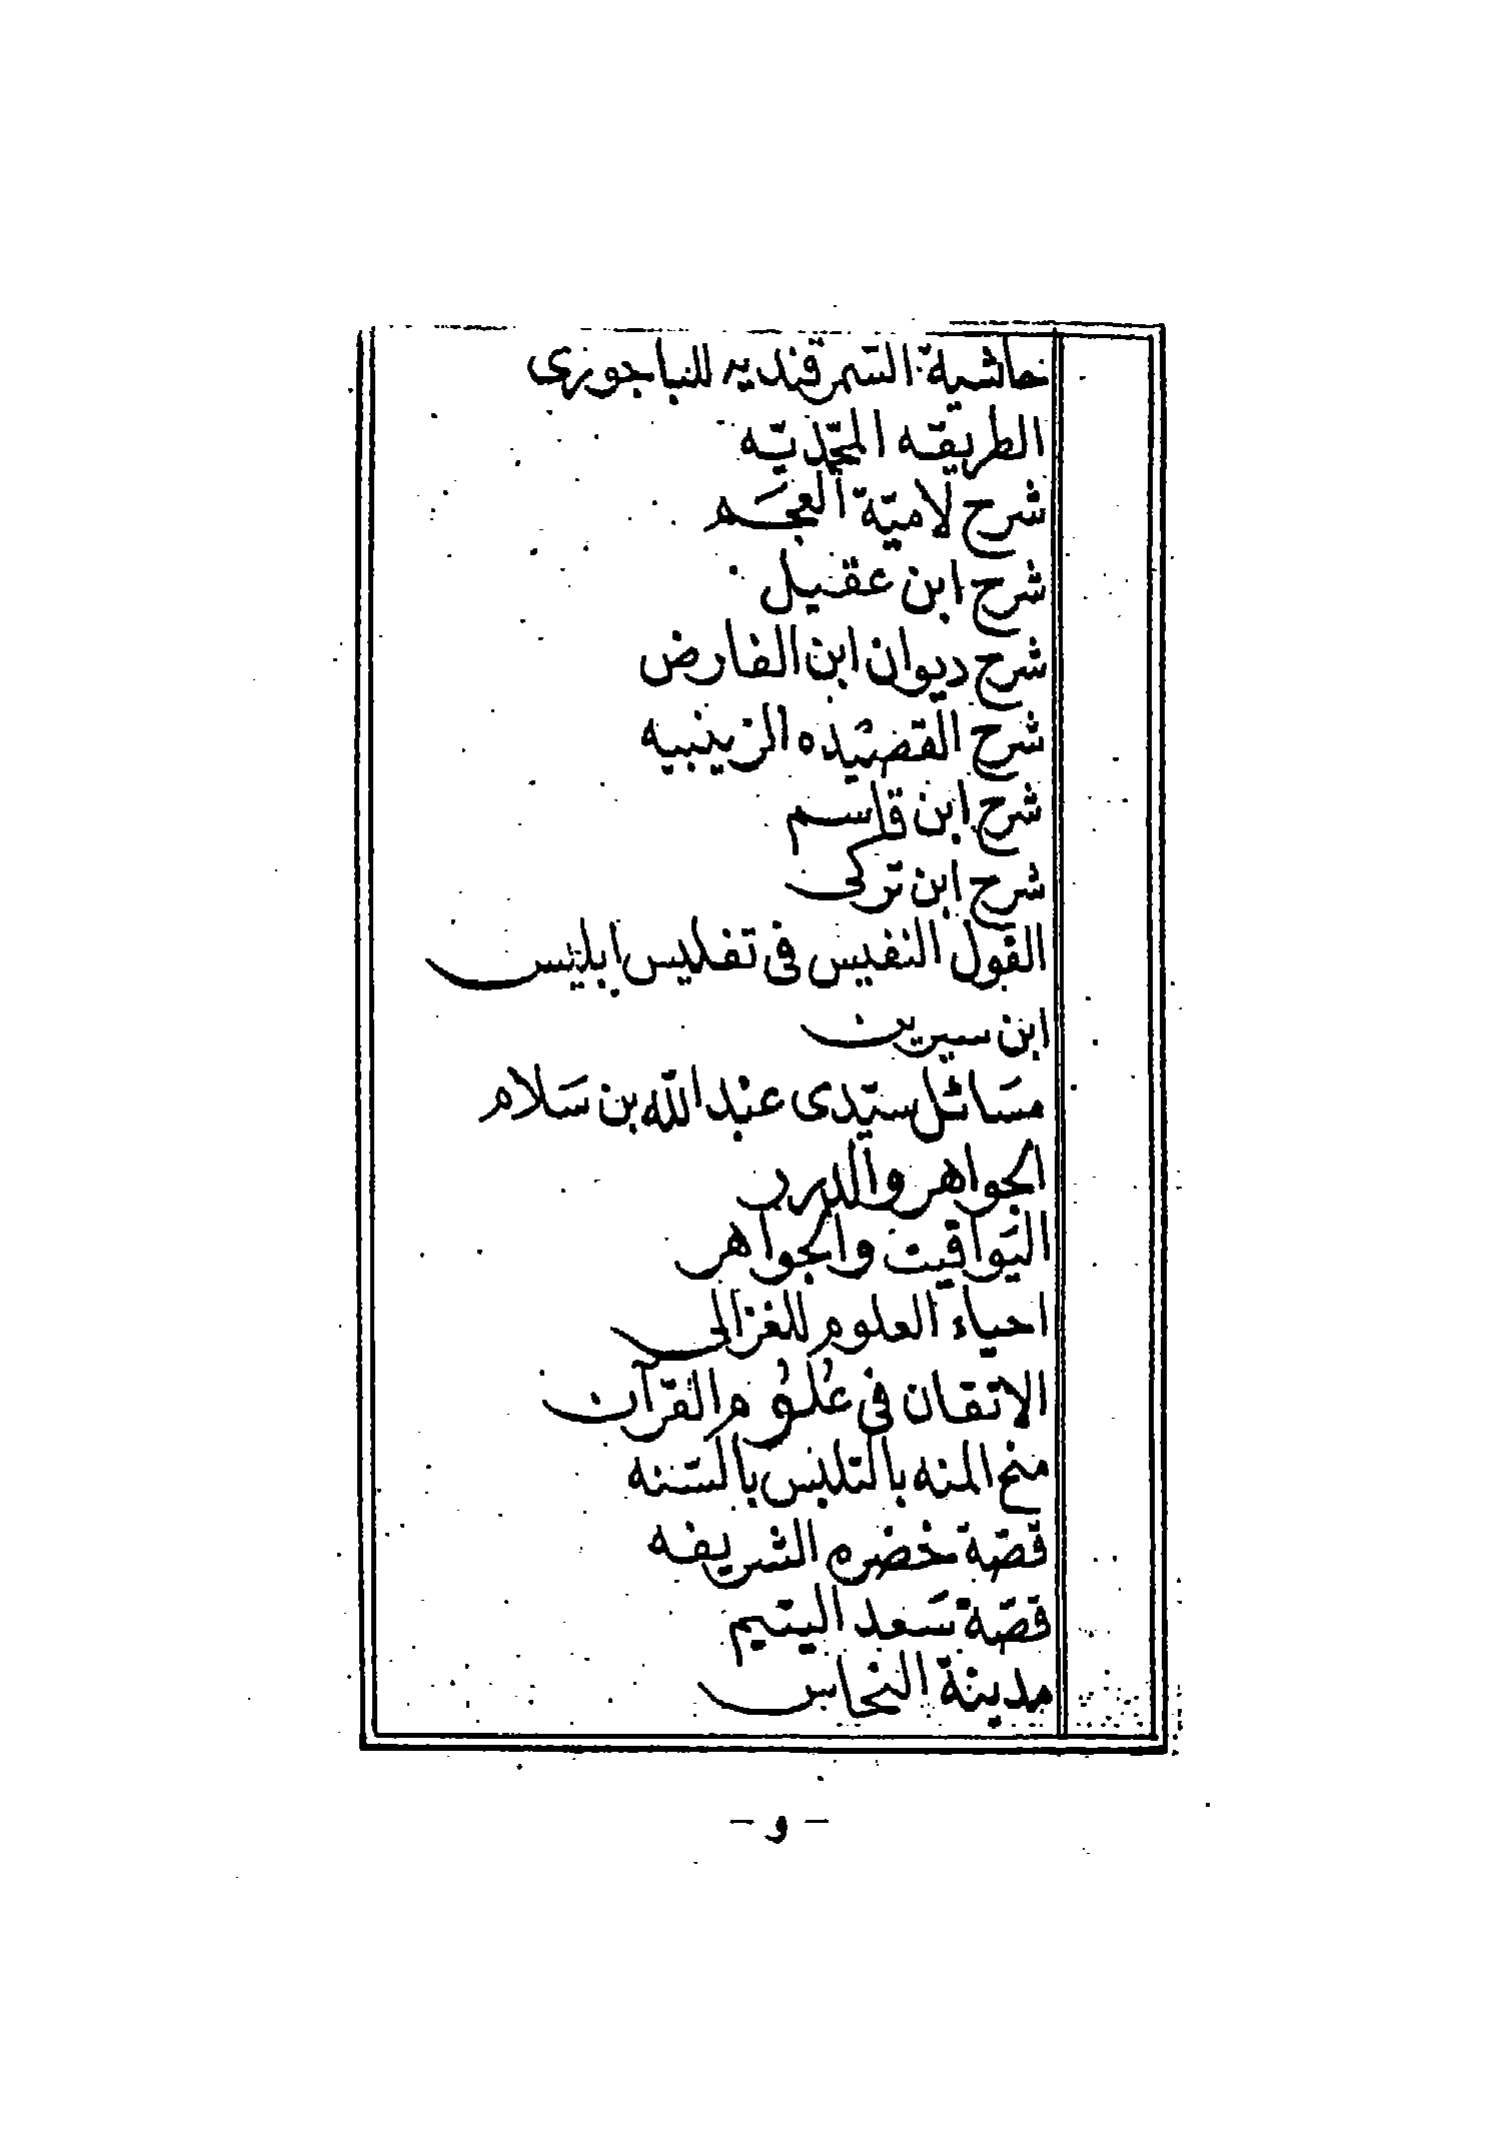 حاشية السمرقنديه للباجورى
الطريقه المحمّديّه
شرح لاميّة العجم
شرح ابن عقيل
شرح ديوان ابن الفارض
شرح القصيده الزينبيه
شرح ابن قاسم
شرح ابن تركى
القول النفيس فى تفليس ابليس
ابن سيرين
مسَائل سيّدى عبد الله بن سَلام
الجواهر والدرر
اليَواقيت والجواهر
احياء العلوم للغزالى
الاتقان فى عُلوُم القرآن
منح المنه بالتلبس بالسّنه
قصّة خضره الشريفه
قصّة سَعد اليتيم
مدينة النحاس
- و -